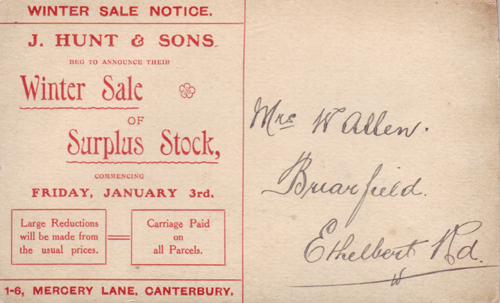 WINTER SALE NOTICE.
J. HUNT & SONS
BEG TO ANNOUNCE THEIR
Winter Sale
OF
Surplus Stock,
COMMENCING
FRIDAY, JANUARY 3rd.
Large Reductions
will be made from
the usual prices.
Carriage Paid
on
all Parcels.
1-6, MERCERY LANE, CANTERBURY.
Mrs W Allen.
Briarfield.
Ethelbert Rd.